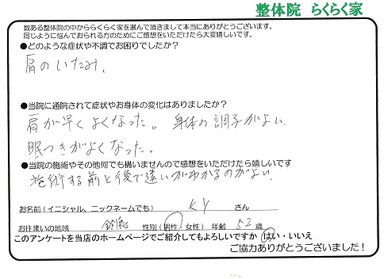 整体院 らくらく家
数ある整体院の中かららくらく家を選んで頂きまして本当にありがとうございます。
同じように悩んでおられる方のためにご感想をいただけたら大変嬉しいです。
●どのような症状や不調でお困りでしたか?
肩のいたみ。
●当院に通院されて症状やお身体の変化はありましたか?
肩が早くよくなった。身体の調子がよい
眠つきがよくなった。
●当院の施術やその他何でも構いませんので感想をいただけたら嬉しいです
施術する前と後で違いがわかるのがよい。
お名前(イニシャル、ニックネームでも) KY さん
お住まいの地域 性別(男性・女性) 年齢 52 歳
このアンケートを当店のホームページでご紹介してもよろしいですか はい・いいえ
ご協力ありがとうございました!